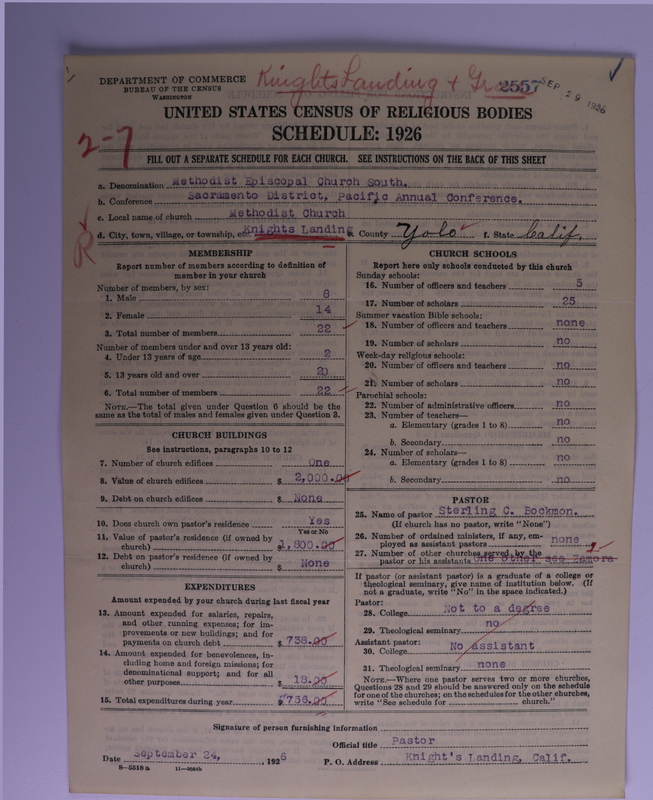 DEPARTMENT OF COMMERCE
BUREAU OF THE CENSUS
WASHINGTON
Knights Landing + Gr
2557
SEP 29 1926
UNITED STATES CENSUS OF RELIGIOUS BODIES
SCHEDULE: 1926
2-7
FILL OUT A SEPARATE SCHEDULE FOR EACH CHURCH. SEE INSTRUCTIONS ON THE BACK OF THIS SHEET
a. Denomination Methodist Episcopal Church South.
b. Conference Sacramento District, Pacific Annual Conference.
c. Local name of church Methodist Church
R
d. City, town, village, or township, etc. Knights Landing e. County Yolo f. State Calif.
MEMBERSHIP
Report number of members according to definition of
member in your church
Number of members, by sex:
1. Male 8
2. Female 14
3. Total number of members 22
Number of members under and over 13 years old:
4. Under 13 years of age 2
5. 13 years old and over 20
6. Total number of members 22
NOTE.—The total given under Question 6 should be the
same as the total of males and females given under Question 3.
CHURCH BUILDINGS
See instructions, paragraphs 10 to 12
7. Number of church edifices One
8. Value of church edifices $ 2,000.00
9. Debt on church edifices $ None
10. Does church own pastor's residence Yes
Yes or No
11. Value of pastor's residence (if owned by
church) $ 1,800.00
12. Debt on pastor's residence (if owned by
church) $ None
EXPENDITURES
Amount expended by your church during last fiscal year
13. Amount expended for salaries, repairs,
and other running expenses; for im-
provements or new buildings; and for
payments on church debt $ 738.00
14. Amount expended for benevolences, in-
cluding home and foreign missions; for
denominational support; and for all
other purposes $ 18.00
15. Total expenditures during year $ 756.00
CHURCH SCHOOLS
Report here only schools conducted by this church
Sunday schools:
16. Number of officers and teachers 5
17. Number of scholars 25
Summer vacation Bible schools:
18. Number of officers and teachers none
19. Number of scholars no
Week-day religious schools:
20. Number of officers and teachers no
21. Number of scholars no
Parochial schools:
22. Number of administrative officers no
23. Number of teachers—
a. Elementary (grades 1 to 8) no
b. Secondary no
24. Number of scholars—
a. Elementary (grades 1 to 8) no
b. Secondary no
PASTOR
25. Name of pastor Sterling C. Bockmon.
(If church has no pastor, write "None")
26. Number of ordained ministers, if any, em-
ployed as assistant pastors none
27. Number of other churches served by the
pastor or his assistants One other see Zamora
If pastor (or assistant pastor) is a graduate of a college or
theological seminary, give name of institution below. (If
not a graduate, write "No" in the space indicated.)
Pastor:
28. College Not to a degree
29. Theological seminary no
Assistant pastor:
30. College No assistant
31. Theological seminary none
NOTE.—Where one pastor serves two or more churches,
Questions 28 and 29 should be answered only on the schedule
for one of the churches; on the schedules for the other churches,
write "See schedule for church."
Signature of person furnishing information
Official title Pastor
Date September 24, 1926 P. O. Address Knight's Landing, Calif.
8—5518a 11—9084b